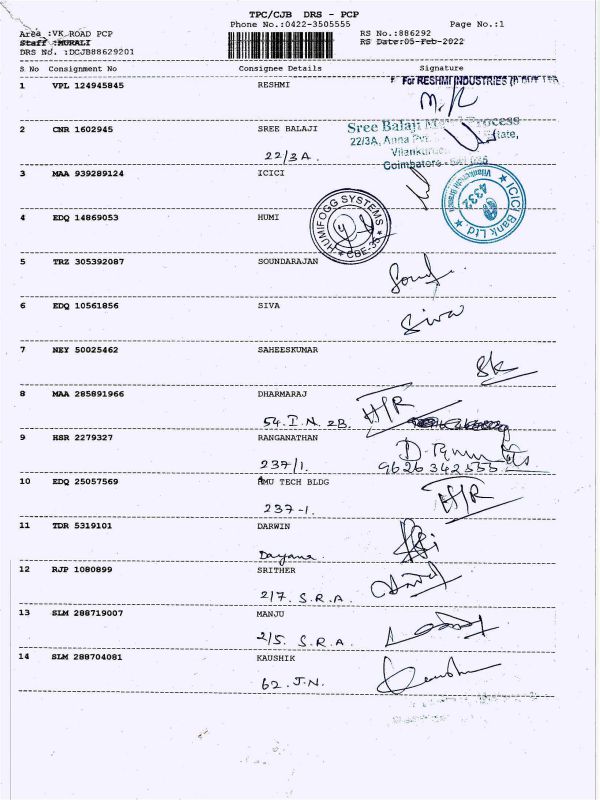 TPC/CJB DRS - PCP
Phone No.:0422-3505555 Page No.:1
Area :VK ROAD PCP RS No.:886292
Staff :MURALI RS Date:05-Feb-2022
DRS No. :DCJB88629201
S No Consignment No Consignee Details Signature
1 VPL 124945845 RESHMI
For RESHMI INDUSTRIES
2 CNR 1602945 SREE BALAJI
Sree Balaji Process
22/3A, Anna
22/3A.
Coimbatore
3 MAA 939289124 ICICI
ICICI Bank Ltd 4332
4 EDQ 14869053 HUMI
HUMIFOGG SYSTEMS CBE-35
5 TRZ 305392087 SOUNDARAJAN
6 EDQ 10561856 SIVA
Siva
7 NEY 50025462 SAHEESKUMAR
SK
8 MAA 285891966 DHARMARAJ
54. I. N. 2B. H/R
9 HSR 2279327 RANGANATHAN
237/1. 9626342555
10 EDQ 25057569 HMU TECH BLDG
237-1. H/R
11 TDR 5319101 DARWIN
Dayana.
12 RJP 1080899 SRITHER
2/7. S.R.A.
13 SLM 288719007 MANJU
2/5. S.R.A.
14 SLM 288704081 KAUSHIK
62. J.N.